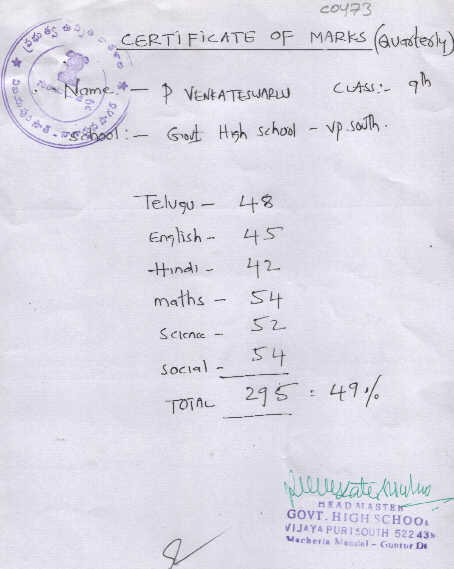 C0473
CERTIFICATE OF MARKS (Quarterly)
Name :- P VENKATESWARLU CLASS:- 9th
School:- Govt High School - VP. South.
Telugu - 48
English - 45
Hindi - 42
maths - 54
Science - 52
Social - 54
TOTAL 295 = 49%
HEAD MASTER
GOVT. HIGH SCHOOL
VIJAYAPURI SOUTH 522 439
Macherla Mandal - Guntur Dt